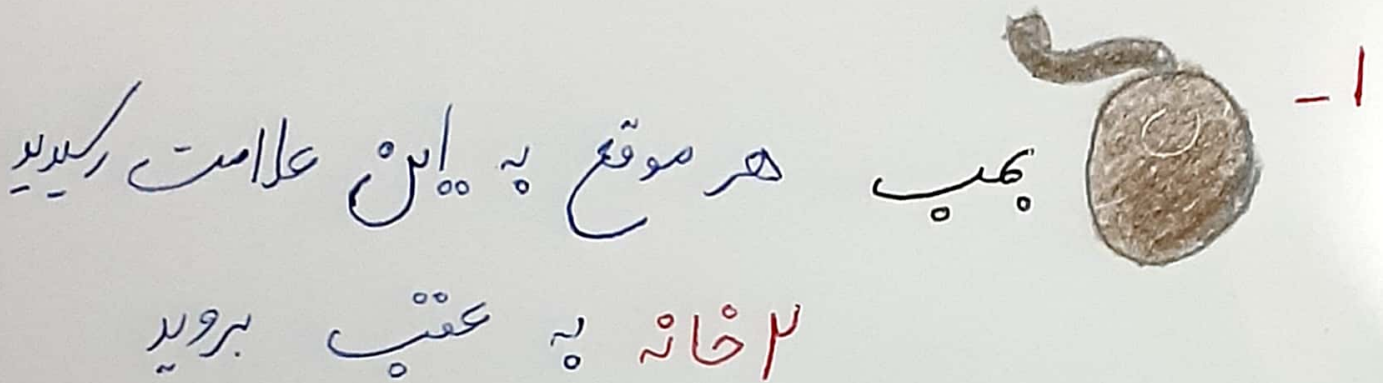 ۱- بمب هر موقع به این علامت رسیدید
۲ خانه به عقب بروید